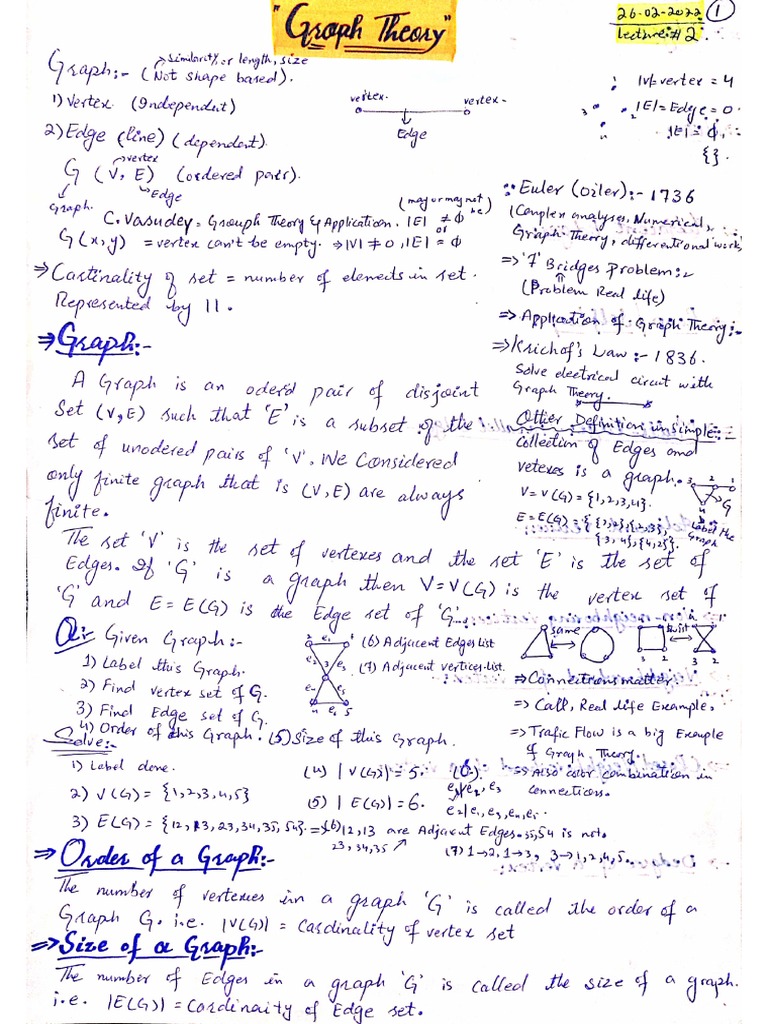 "Graph Theory"
26-02-2022 (1)
Lecture:# 2.
Graph:- (Not shape based).
similarity or length, size
1) Vertex (Independent)
vertex. vertex.
Edge
2) Edge (line) (dependent).
|V| = vertex = 4
|E| = Edge = 0.
|E| = ϕ.
{}.
G (V, E) (ordered pairs).
vertex
Edge
Graph.
C. Vasudev = Grouph Theory & Application. |E| ≠ ϕ
(may or may not be)
or
G(x,y) = vertex can't be empty. ⇒ |V| ≠ 0, |E| = ϕ
⇒ Cartinality of set = number of elements in set.
Represented by ||.
Euler (oiler):- 1736
(Complex analyses, Numerical,
Graph Theory, differentional work,
⇒ '7' Bridges Problem:-
(Problem Real life)
⇒ Application of Graph Theory:-
⇒ Krichof's Law:- 1836.
Solve electrical circuit with
Graph Theory.
⇒ Graph:-
A Graph is an oder'd pair of disjoint
Set (V, E) such that 'E' is a subset of the
set of unodered pairs of 'V'. We Considered
only finite graph that is (V, E) are always
finite.
Other Definition in simple:-
collection of Edges and
vetexes is a graph.
V = V(G) = {1,2,3,4}.
E = E(G) = {{1,2},{2,3},
{3,4},{4,2}}.
3 2 1
G
Label the
Graph
The set 'V' is the set of vertexes and the set 'E' is the set of
Edges. If 'G' is a graph then V=V(G) is the vertex set of
'G' and E = E(G) is the Edge set of 'G'.
Q: Given Graph:-
1) Label this Graph.
2) Find vertex set of G.
3) Find Edge set of G.
4) Order of this Graph. (5) Size of this Graph.
(6) Adjacent Edges list
(7) Adjacent vertices list.
same
twist
⇒ Connections matter
⇒ Call, Real life Example,
⇒ Trafic Flow is a big Example
of Graph Theory.
⇒ Also color combination in
connections.
Solve:-
1) Label done.
2) V(G) = {1,2,3,4,5}
3) E(G) = {12, 13, 23, 34, 35, 54}.
(4) |V(G)| = 5.
(5) |E(G)| = 6.
(6)
⇒ (6) 12,13 are Adjacent Edges. 35,54 is not.
23, 34,35
(7) 1→2, 1→3, 3→1,2,4,5.
⇒ Order of a Graph:-
The number of vertexies in a graph 'G' is called the order of a
Graph G. i.e. |V(G)| = Cardinality of vertex set
⇒ Size of a Graph:-
The number of Edges in a graph 'G' is called the size of a graph.
i.e. |E(G)| = Cordinaity of Edge set.